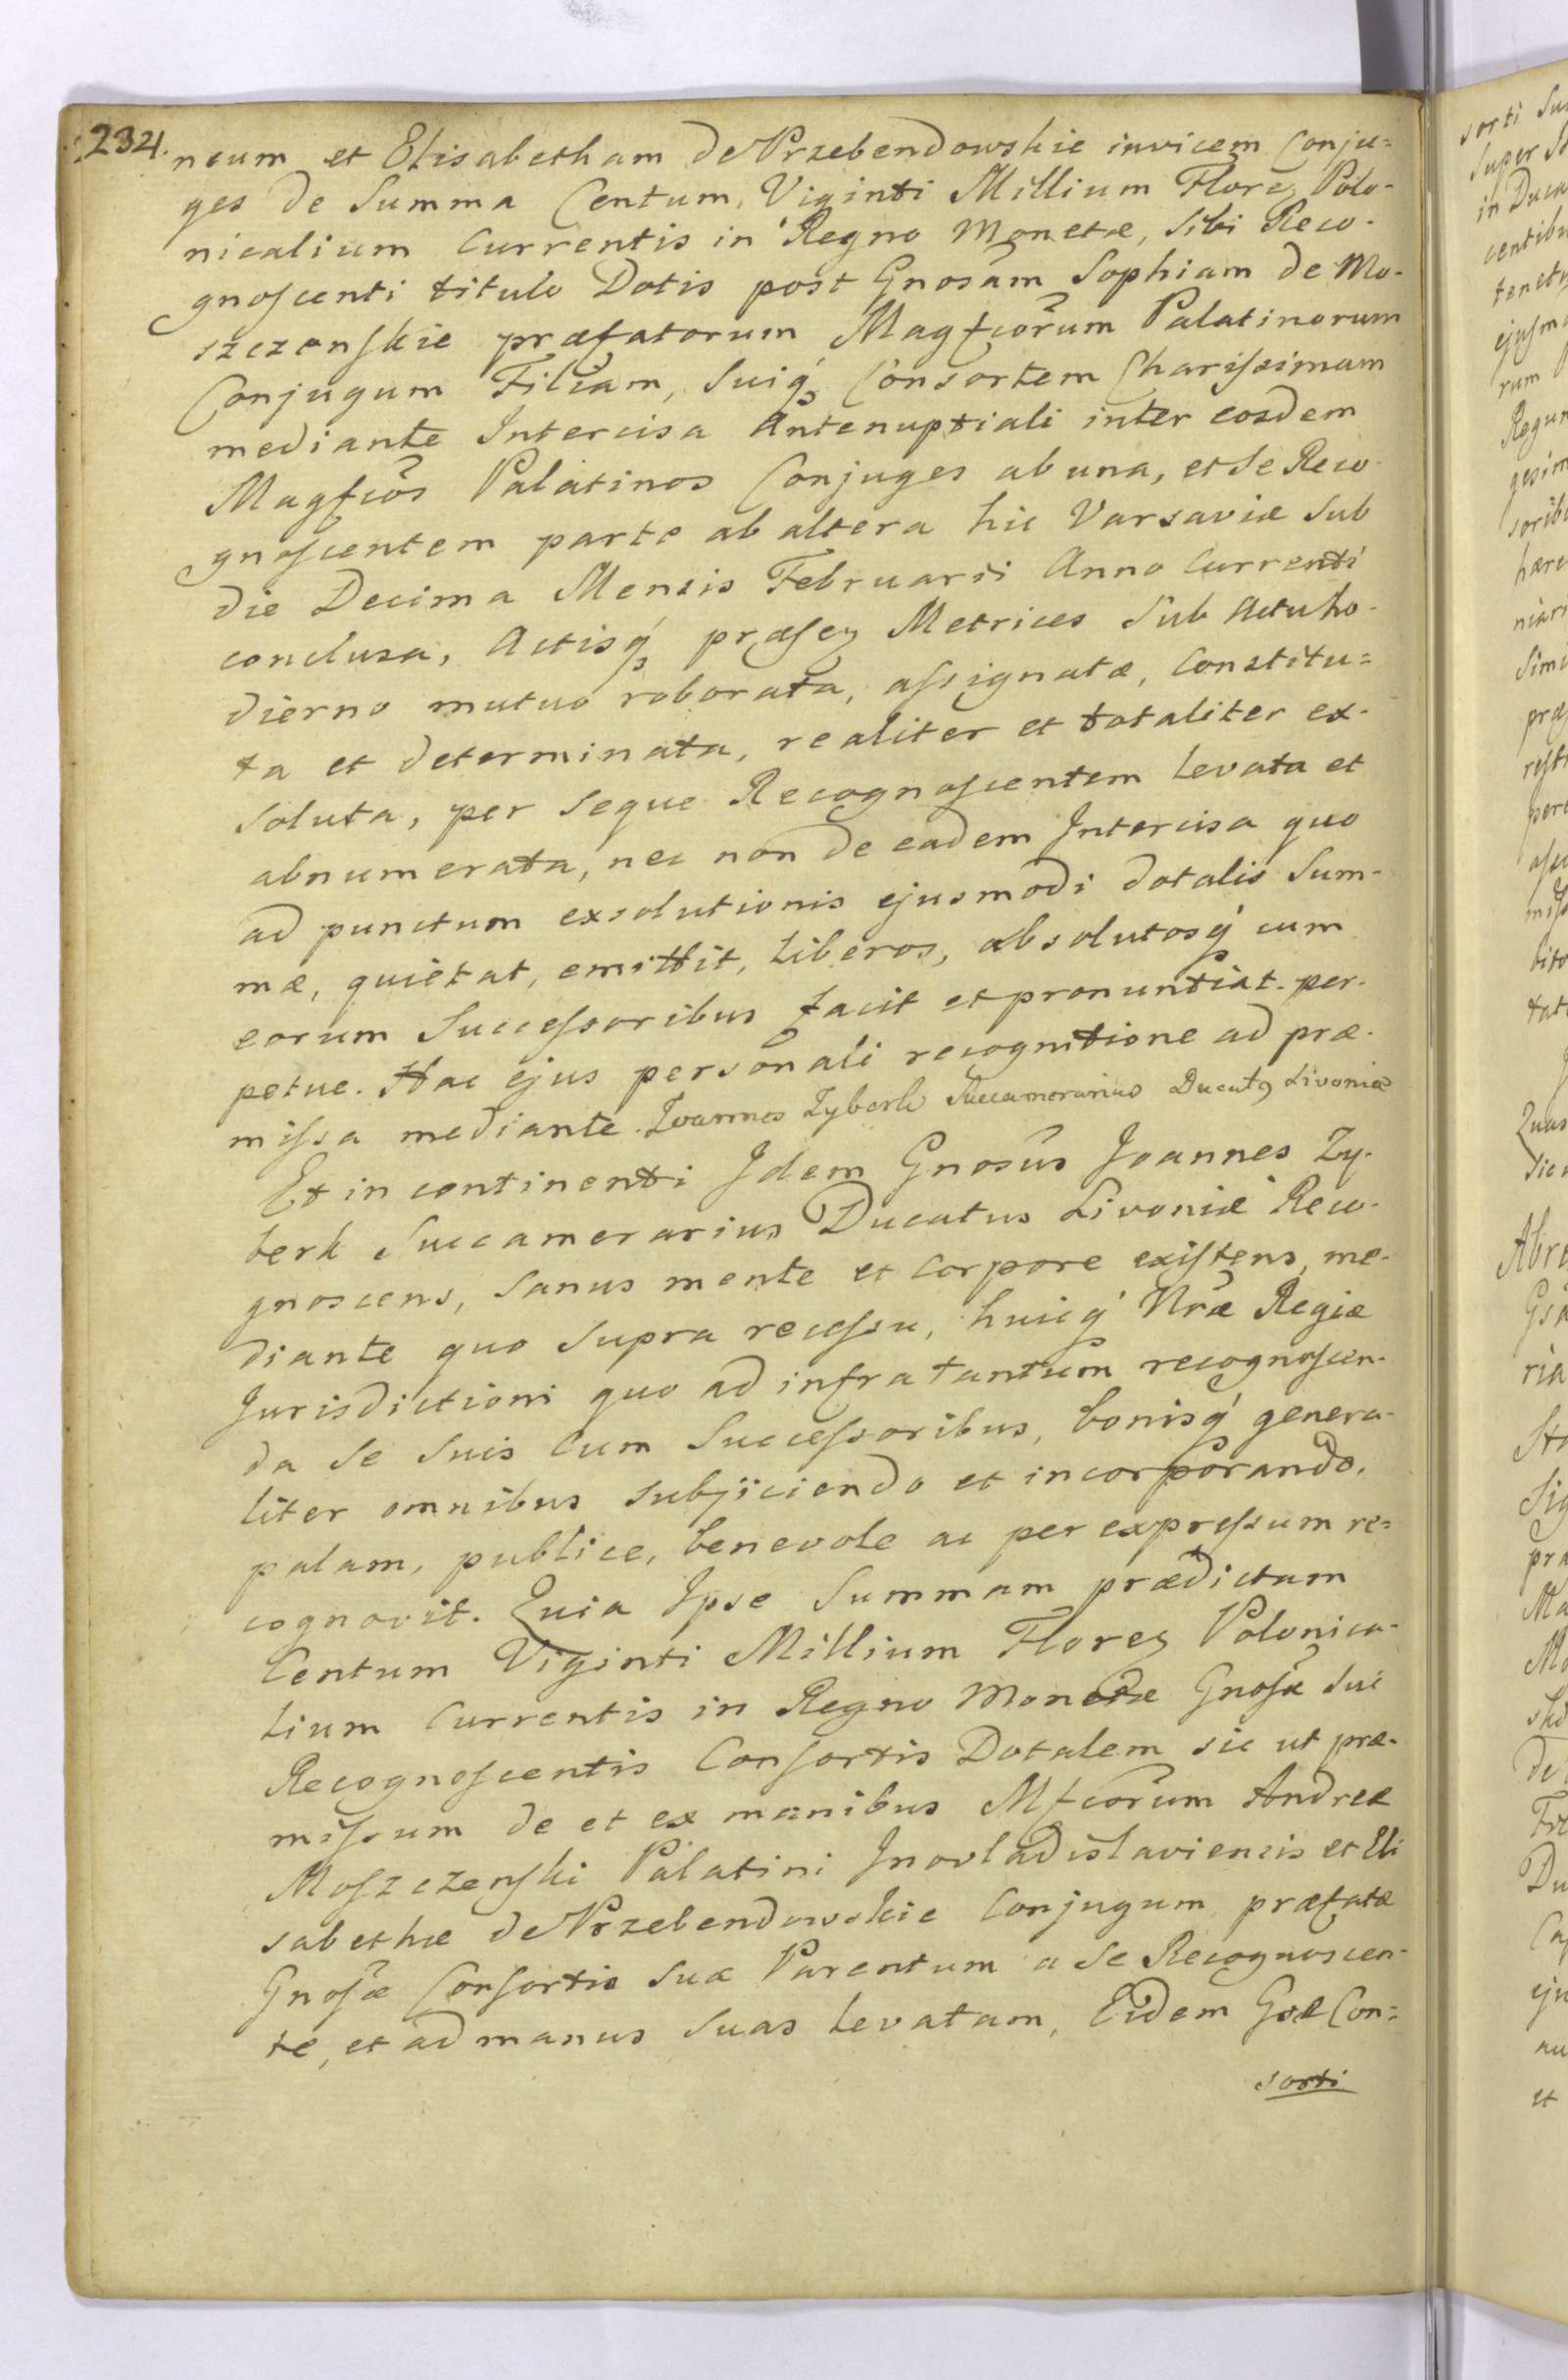 234.
neum et Elisabetham de Przebendowskie invicem Conju=
ges de Summa Centum, Viginti Millium Floreꝫ Polo-
nicalium Currentis in Regno Monetæ, Sibi Reco-
gnoſcenti titulo Dotis post Gnosam Sophiam de Mo-
szczenſkie præfatorum Magfcorum Palatinorum
Conjugum Filiam, Suiq́ Consortem Chariſsimam
mediante Intercisa Antenuptiali inter eosdem
Magfcos Palatinos Conjuges ab una, et Se Reco-
gnoſcentem parte ab altera hic Varsaviæ Sub
die Decima Mensis Februarii Anno Currenti
conclusa, Actisq́ præſeꝫ Metrices Sub Actu ho-
dierno mutuo roborata, aſsignatæ, Constitu=
ta et determinata, realiter et totaliter ex-
soluta, per Seque Recognoſcentem levata et
abnumerata, nec non de eadem Intercisa quo
ad punctum exsolutionis ejusmodi dotalis Sum-
mæ, quietat, emittit, liberos, absolutosq́ cum
eorum Succeſsoribus facit et pronuntiat per-
petue. Hac ejus personali recognitione ad præ-
miſsa mediante. Joannes Zyberk Succamerarius Ducatꝰ Livoniæ
Et in continenti Idem Gnosus Joannes Zy-
berk Succamerarius Ducatus Livoniæ Reco-
gnoscens, Sanus mente et Corpore exiſtens, me-
diante quo Supra receſsu, huicq́ Nræ Regiæ
Jurisdictioni quo ad infra tantum recognoſcen-
da Se Suis Cum Succeſsoribus, bonisq́ genera-
liter omnibus Subjiciendo et incorporando,
palam, publice, benevole ac per expreſsum re=
cognovit. Quia Ipse Summam prædictam
Centum Viginti Millium Floreꝫ Polonica-
lium Currentis in Regno Monetæ Gnoſæ Sui
Recognoſcentis Conſortis Dotalem sic ut præ-
miſsum de et ex manibus Mfcorum Andreæ
Moſzczenſki Palatini Inovladislaviensis et Eli
sabethæ de Przebendowskie Conjugum præfatæ
Gnoſæ Conſortis Suæ Parentum a Se Recognoscen-
te, et ad manus Suas levatam, Eidem Gsæ Con=
sorti
sorti
Super
in Duca
centibu
tenetu
ejuſmo
rum
Regun
gesim
soribu
hære
Simu
præ
Abre
ria
Sig
præ
Ma
Du
et